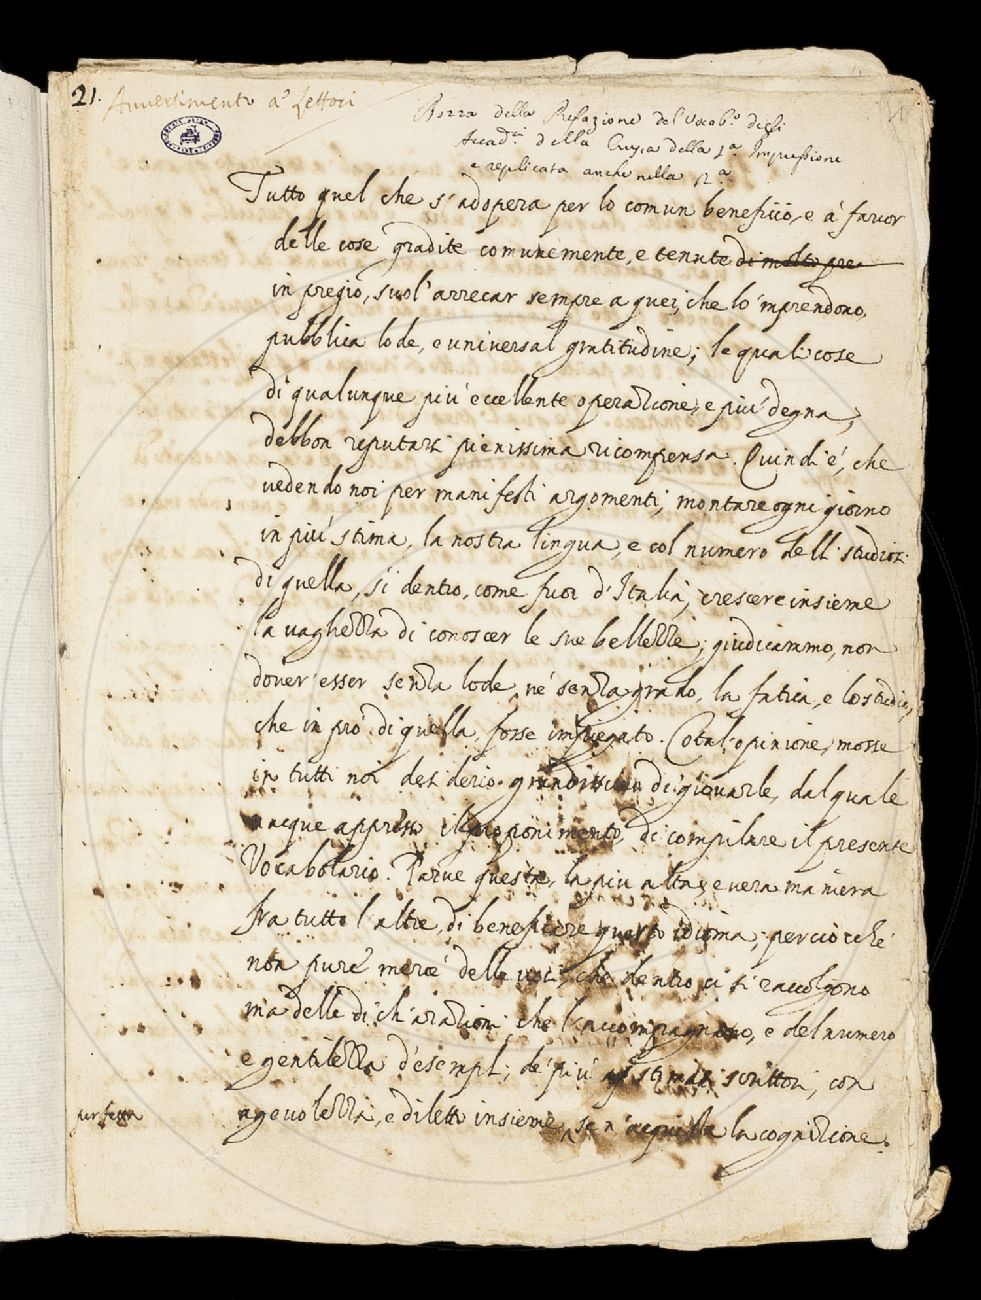 21. Avvertimento a' lettori
Bozza della Prefazione del Vocab.º degli
Accad.ci della Crusca della 1.ª Impressione
e replicata anche nella 2.ª
Tutto quel che s'adopera per lo comun benefizio, e à favor
delle cose gradite comunemente, e tenute di molto pre
in pregio, suol' arrecar sempre a quei, che lo 'mprendono,
pubblica lode, e universal gratitudine; le quali cose
di qualunque più eccellente operazione, e più degna,
debbon reputarsi pienissima ricompensa. Quindi è, che
vedendo noi per manifesti argomenti, montare ogni giorno
in più stima, la nostra lingua, e col numero delli studiosi
di quella, sì dentro, come fuor d'Italia, crescere insieme
la vaghezza di conoscer le sue bellezze; giudicammo, non
dover' esser senza lode, né senza grado, la fatica, e lo studio,
che in prò di quella, fosse impiegato. Cotal opinione, mosse
in tutti noi desiderio grandissimo di giovarle, dal quale
nacque appresso il proponimento, di compilare il presente
Vocabolario. Parve questa, la più alta, e vera maniera
fra tutte l'altre, di beneficere questo idioma; perciocché
non pure mercé delle voci, che dentro ci si raccolgono
ma delle dichiarazioni che l'accompagnano, e del numero
e gentilezza d'esempli, de' più stimati scrittori, con
agevolezza, e diletto insieme, se n'acquista la cognizione.
perfetta